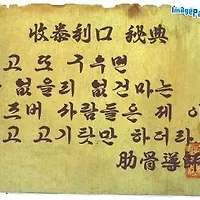 收泰利口 秘典
고 또 구우면
 없을리 없건마는
즈버 사람들은 제 
고 고기탓만 하더라
肋骨導師